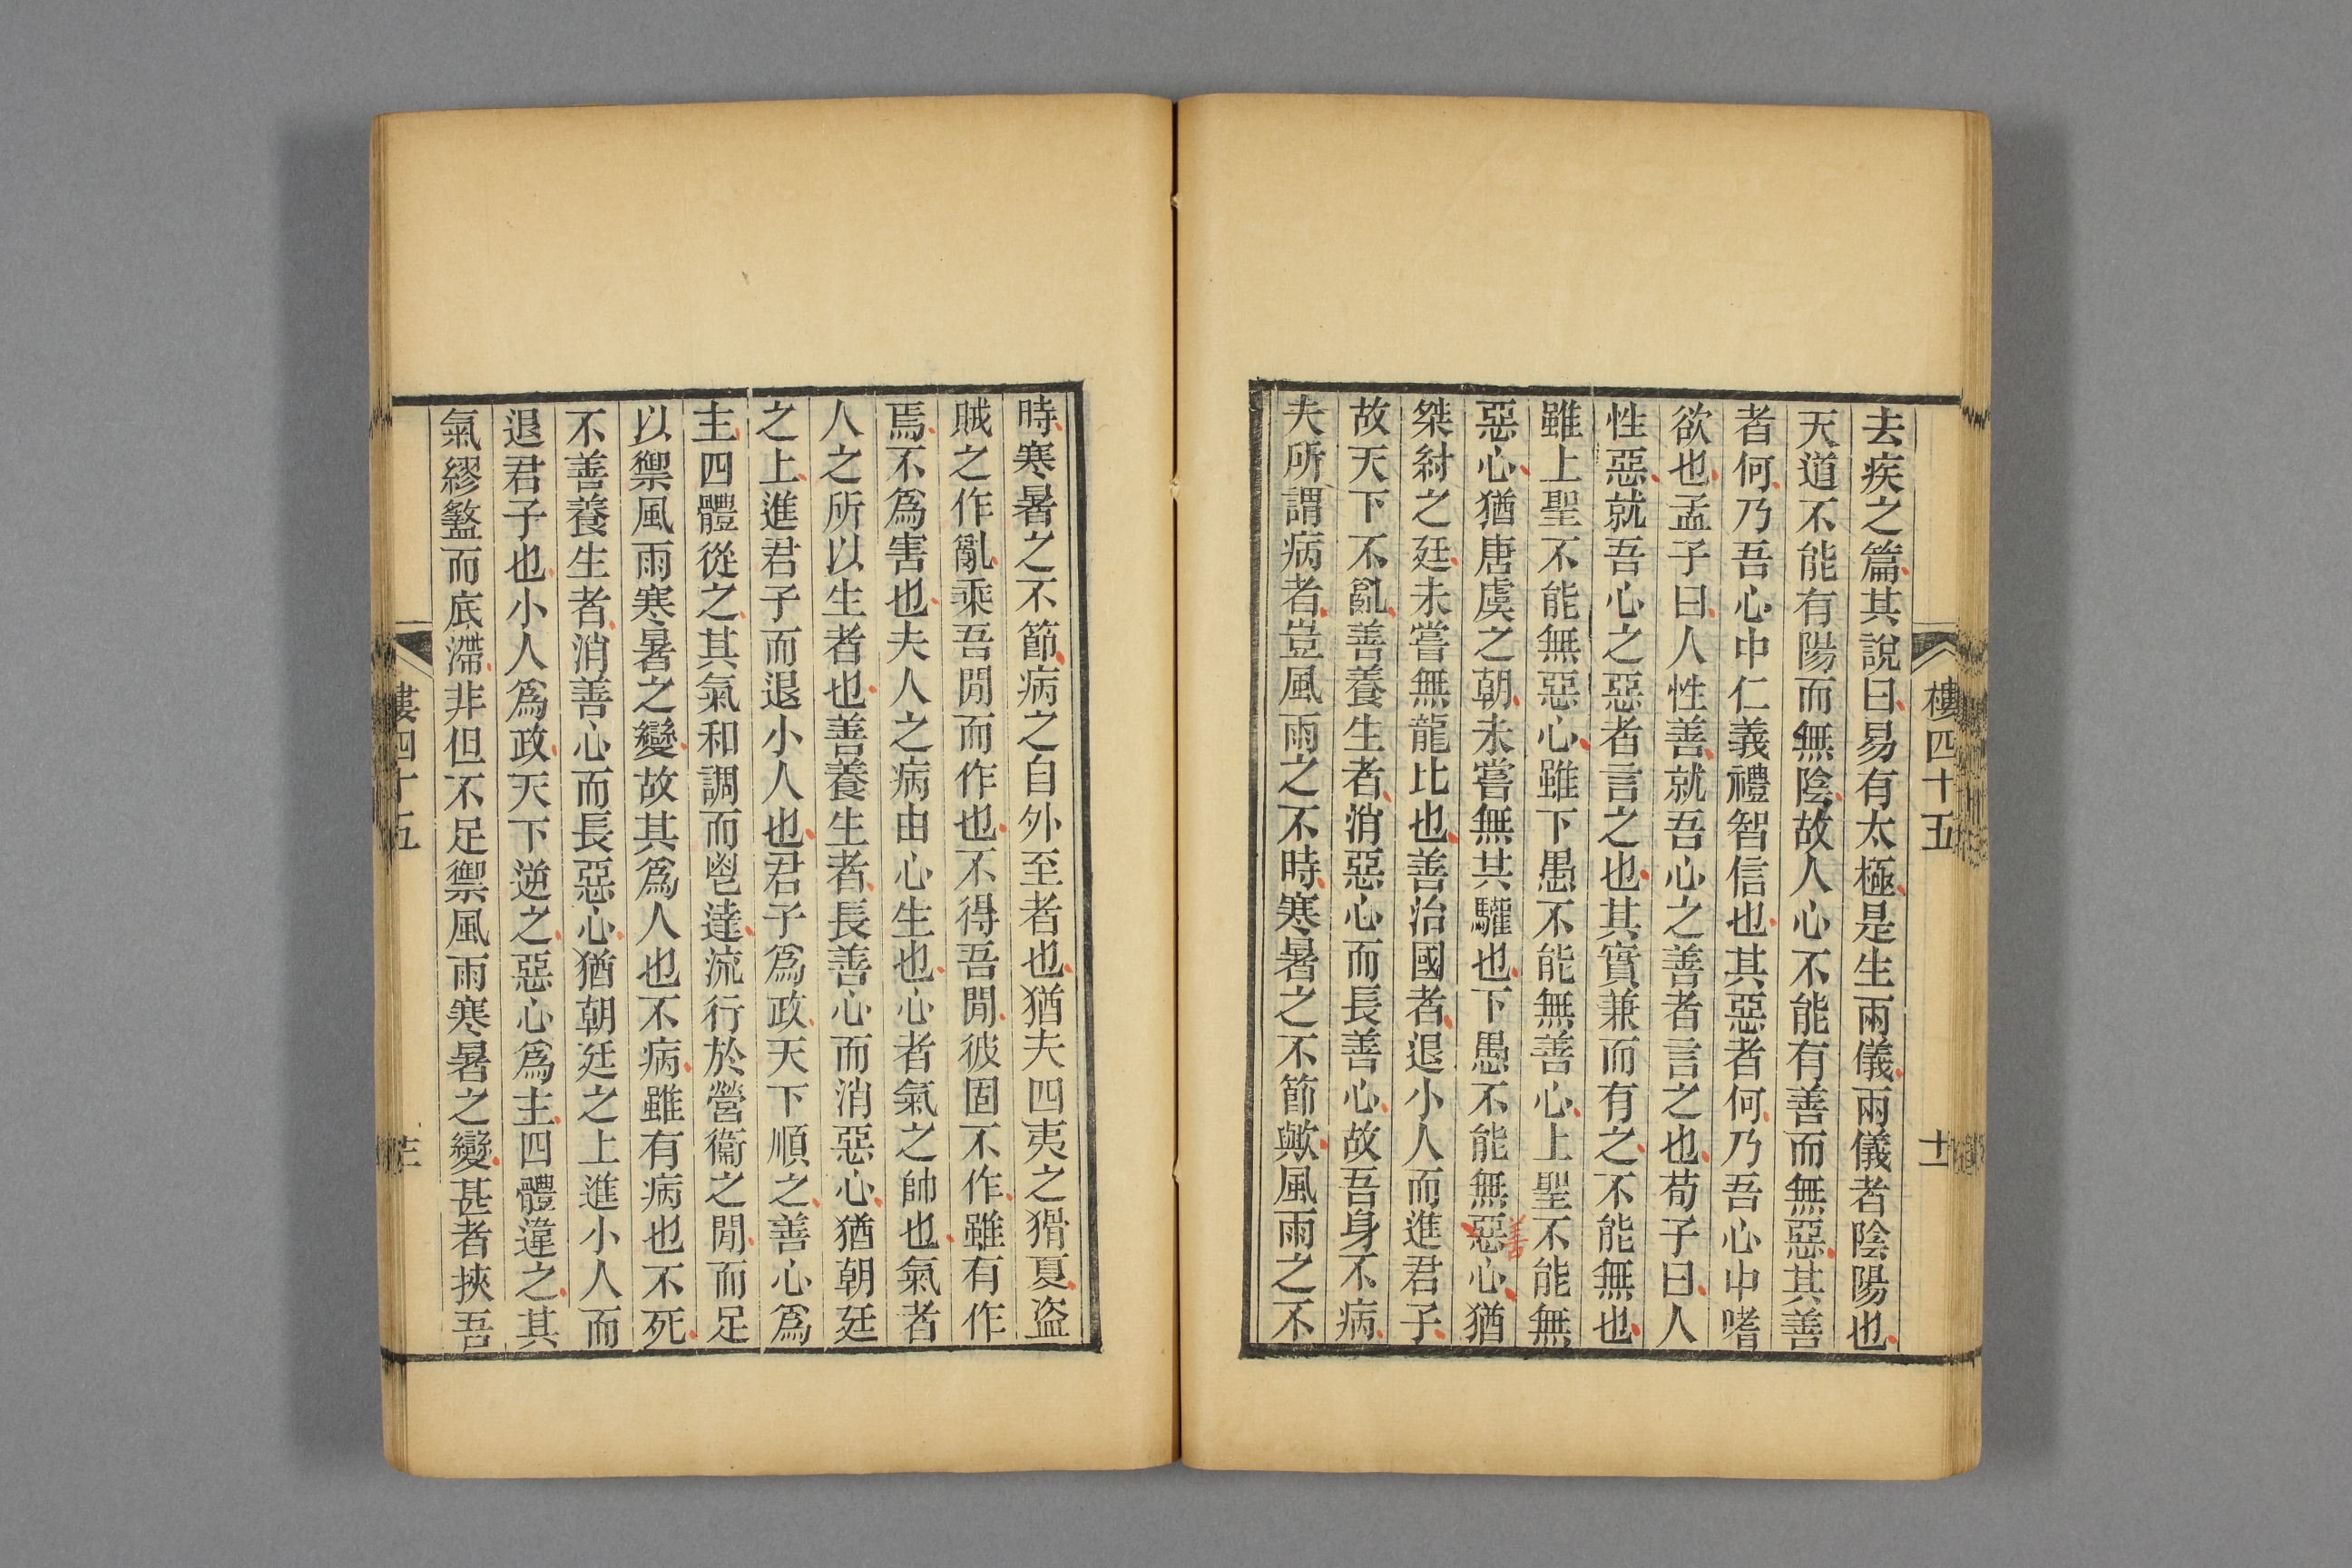 樓四十五
十二
去疾之篇其說曰易有太極是生兩儀兩儀者陰陽也
天道不能有陽而無陰故人心不能有善而無惡其善
者何乃吾心中仁義禮智信也其惡者何乃吾心中嗜
欲也孟子曰人性善就吾心之善者言之也荀子曰人
性惡就吾心之惡者言之也其實兼而有之不能無也
雖上聖不能無惡心雖下愚不能無善心上聖不能無
惡心猶唐虞之朝未嘗無共驩也下愚不能無惡心猶
善
桀紂之廷未嘗無龍比也善治國者退小人而進君子
故天下不亂善養生者消惡心而長善心故吾身不病
夫所謂病者豈風雨之不時寒暑之不節歟風雨之不
時寒暑之不節病之自外至者也猶夫四夷之猾夏盜
賊之作亂乘吾閒而作也不得吾閒彼固不作雖有作
焉不爲害也夫人之病由心生也心者氣之帥也氣者
人之所以生者也善養生者長善心而消惡心猶朝廷
之上進君子而退小人也君子爲政天下順之善心爲
主四體從之其氣和調而鬯達流行於營衞之閒而足
以禦風雨寒暑之變故其爲人也不病雖有病也不死
不善養生者消善心而長惡心猶朝廷之上進小人而
退君子也小人爲政天下逆之惡心爲主四體違之其
氣繆盭而底滯非但不足禦風雨寒暑之變甚者挾吾
樓四十五